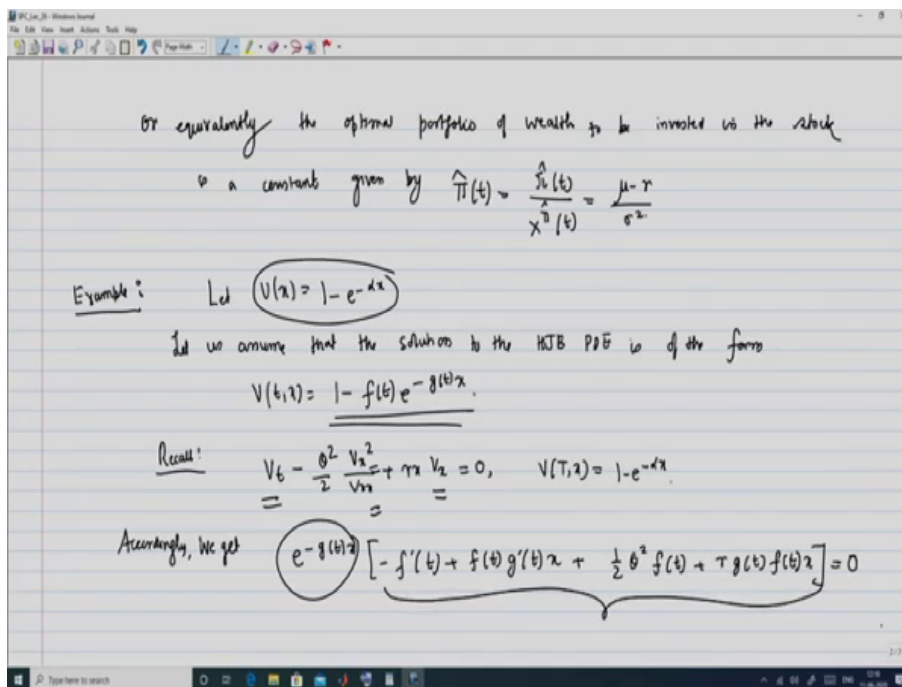 SPC_Lec_26 - Windows Journal
File Edit View Insert Actions Tools Help
Page Width
or equivalently the optimal portfolio of wealth to be invested in the stock
is a constant given by π̂(t) = π̂(t) / X^π̂(t) = μ-r / σ²
Example: Let U(x) = 1 - e^{-αx}
Let us assume that the solution to the HJB PDE is of the form
V(t,x) = 1 - f(t) e^{-g(t)x}.
Recall: V_t - θ²/2 V_x²/V_xx + rx V_x = 0, V(T,x) = 1-e^{-αx}.
Accordingly, we get e^{-g(t)x} [-f'(t) + f(t) g'(t) x + 1/2 θ² f(t) + r g(t) f(t) x] = 0
Type here to search